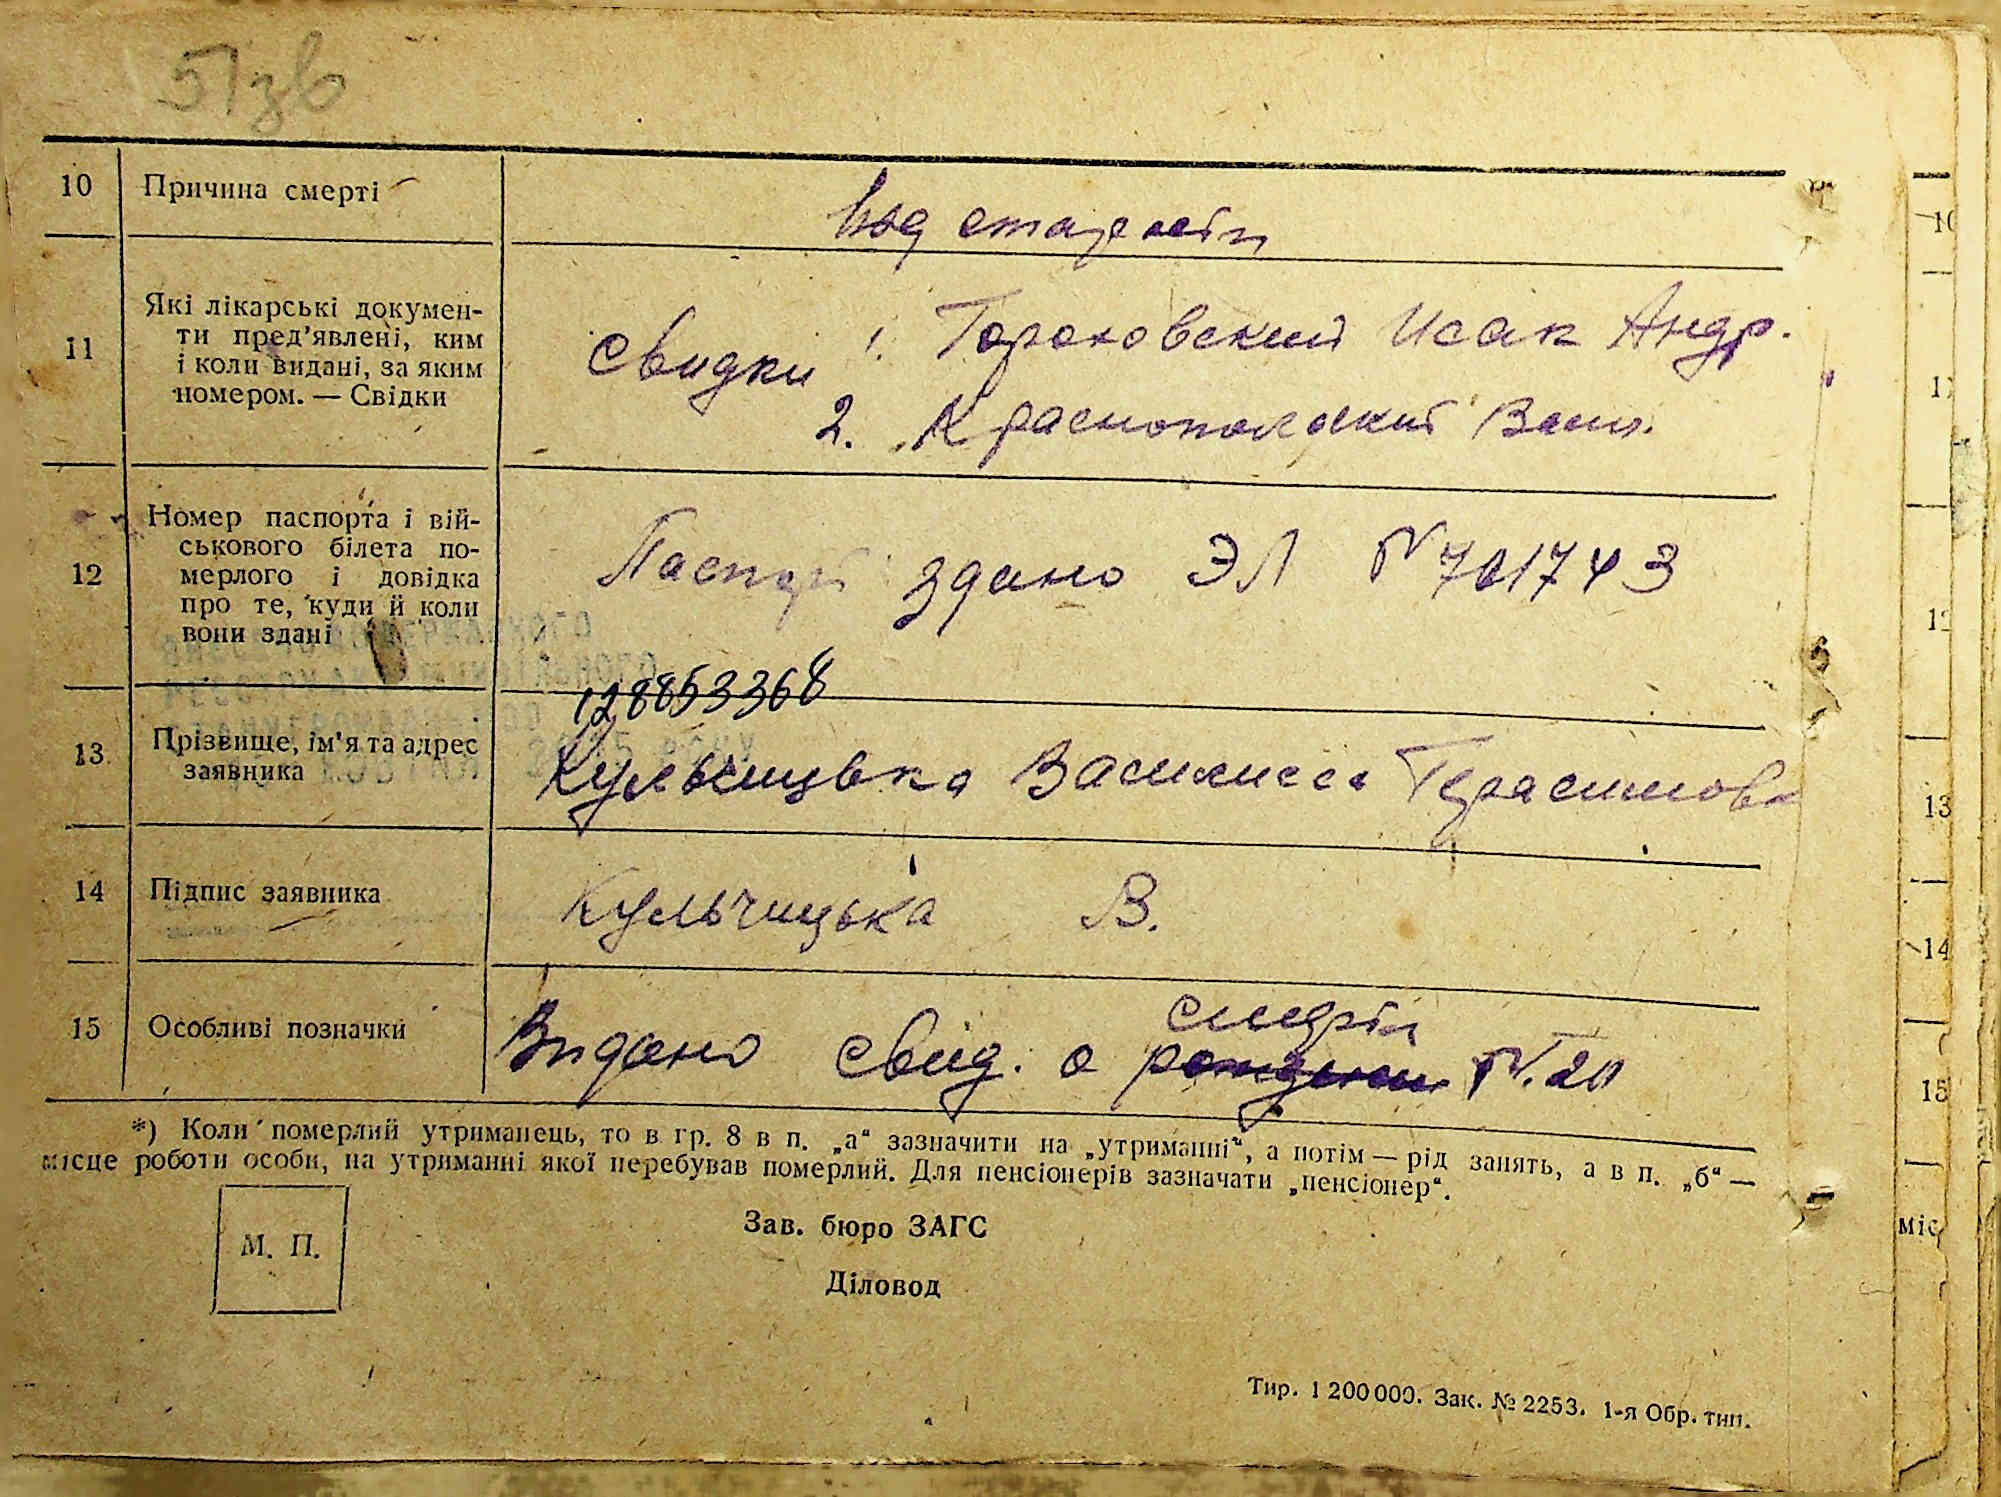 51зв
10 Причина смерті
Від старости
11 Які лікарські докумен-
ти пред'явлені, ким
і коли видані, за яким
номером. — Свідки
Свидки 1. Гороховский Исак Андр.
2. Краснопольский Васил.
12 Номер паспорта і вій-
ськового білета по-
мерлого і довідка
про те, куди й коли
вони здані
Паспорт здано ЭЛ № 701743
128853368
13 Прізвище, ім'я та адрес
заявника
Кульчицька Василисса Герасимовн
14 Підпис заявника
Кульчицька В.
15 Особливі позначки
смерти
Видано свид. о рождении №.20
*) Коли померлий утриманець, то в гр. 8 в п. „а“ зазначити на „утриманні“, а потім — рід занять, а в п. „б“ —
місце роботи особи, на утриманні якої перебував померлий. Для пенсіонерів зазначати „пенсіонер“.
М. П.
Зав. бюро ЗАГС
Діловод
Тир. 1 200 000. Зак. № 2253. 1-я Обр. тип.
10
11
12
13
14
15
міс